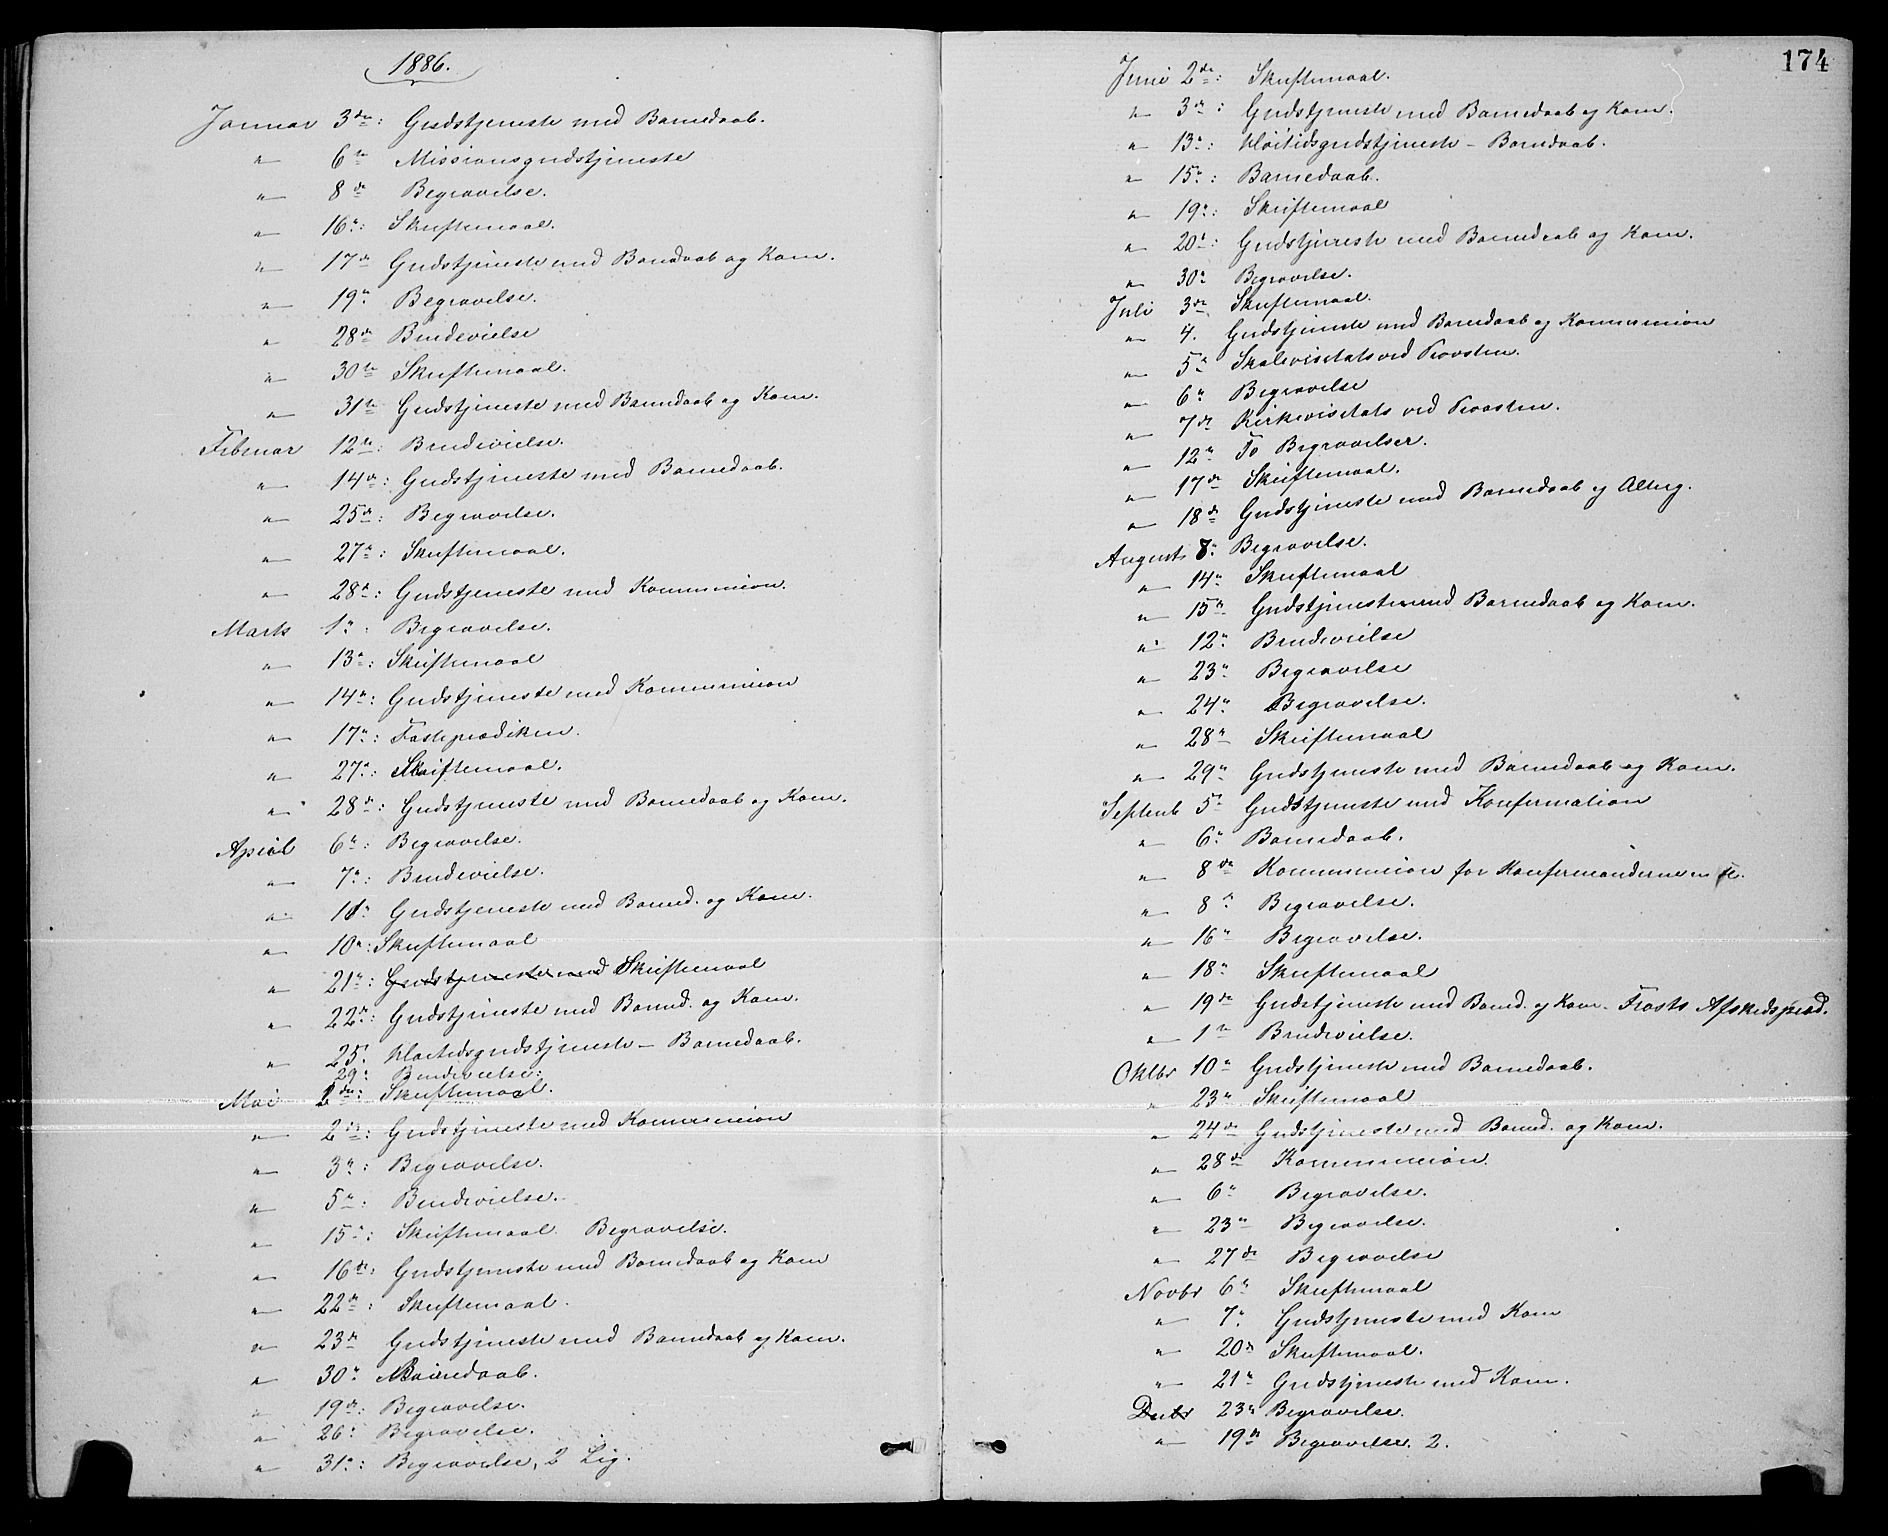 1886.
Januar 3die: Gudstjeneste med Barnedaab.
" 6te Missionsgudstjeneste
" 8de Begravelse.
" 16": Skriftemaal.
" 17de Gudstjeneste med Barnedaab og Kom.
" 19" Begravelse.
" 28de Brudevielse
" 30te Skriftemaal.
" 31te Gudstjeneste med Barnedaab og Kom.
Februar 12te: Brudevielse.
" 14de: Gudstjeneste med Barnedaab.
" 25de: Begravelse.
" 27": Skriftemaal.
" 28de: Gudstjeneste med Kommunion.
Marts 1": Begravelse.
" 13": Skriftemaal
" 14": Gudstjeneste med Kommunion
" 17": Fasteprædiken.
" 27": Skriftemaal.
" 28de: Gudstjeneste med Barnedaab og Kom.
April 6": Begravelse.
" 7": Brudevielse.
" 11" Gudstjeneste med Barned. og Kom.
" 10": Skriftemaal
" 21": Gudstjeneste med Skriftemaal
" 22de: Gudstjeneste med Barned. og Kom.
" 25. Høitidsgudstjeneste – Barnedaab.
29" Brudevielse:
Mai 1ste: Skriftemaal.
" 2den: Gudstjeneste med Kommunion
" 3": Begravelse.
" 5": Brudevielse.
" 15": Skriftemaal Begravelse.
" 16de: Gudstjeneste med Barnedaab og Kom
" 22de: Skriftemaal.
" 23de Gudstjeneste med Barnedaab og Kom.
" 30" Barnedaab.
" 19de: Begravelse.
" 26: Begravelse.
" 31": Begravelse, 2 Lig.
174
Juni 2de: Skriftemaal.
" 3de: Gudstjeneste med Barnedaab og Kom.
" 13": Høitidsgudstjeneste – Barnedaab.
" 15": Barnedaab.
" 19": Skriftemaal
" 20": Gudstjeneste med Barnedaab og Kom.
" 30" Begravelse.
Juli 3die Skriftemaal.
" 4. Gudstjeneste med Barnedaab og Kommunion
" 5" Skolevisitats ved Provsten.
" 6" Begravelse
" 7de Kirkevisitats ved Provsten.
" 12" To Begravelser.
" 17de Skriftemaal.
" 18de Gudstjeneste med Barnedaab og Alterg.
August 8" Begravelse.
" 14" Skriftemaal
" 15" Gudstjeneste med Barnedaab og Kom.
" 12" Brudevielse
" 23" Begravelse
" 24" Begravelse.
" 28" Skriftemaal
" 29" Gudstjeneste med Barnedaab og Kom.
Septemb 5" Gudstjeneste med Konfirmation
" 6" Barnedaab.
" 8de Kommunion for Konfirmanderne m fl.
" 8" Begravelse.
" 16" Begravelse.
" 18" Skriftemaal
" 19de Gudstjeneste med Barned. og Kom. Frosts Afskedspræd.
" 1te Brudevielse.
Oktbr 10" Gudstjeneste med Barnedaab.
" 23" Skriftemaal
" 24de Gudstjeneste med Barned. og Kom.
" 28de Kommunion.
" 6" Begravelse.
" 23" Begravelse.
" 27de Begravelse
Novbr 6" Skriftemaal
" 7" Gudstjeneste med Kom
" 20de Skriftemaal.
" 21" Gudstjeneste med Kom.
Decbr 23" Begravelse.
" 19de Begravelse. 2.